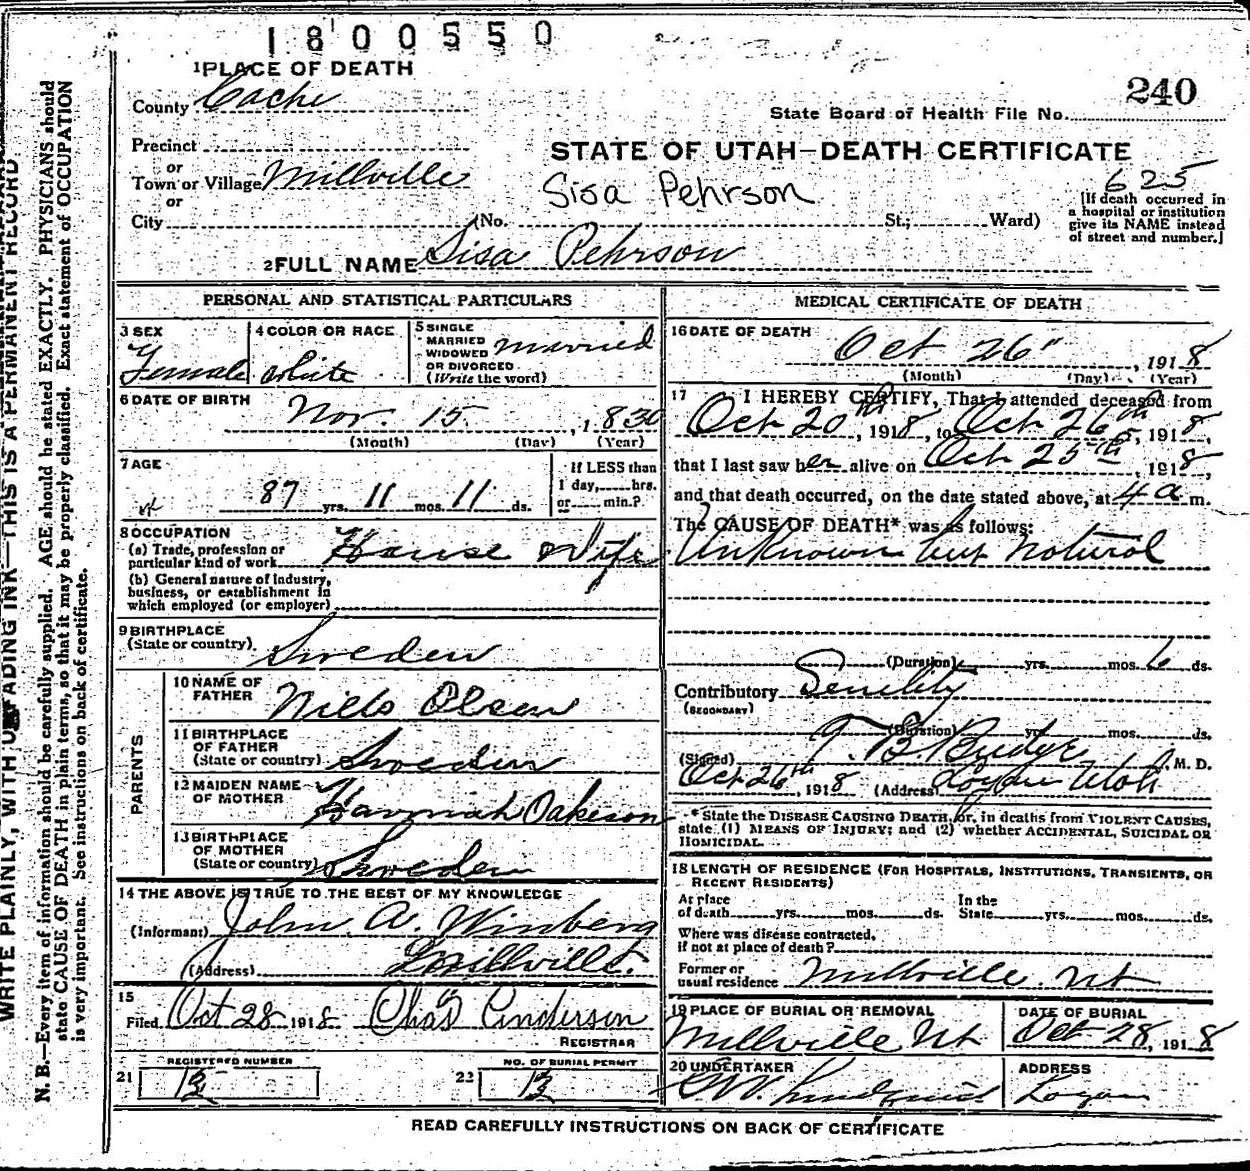 1800550
1 PLACE OF DEATH
240
County Cache
State Board of Health File No.
Precinct
STATE OF UTAH—DEATH CERTIFICATE
or
Town or Village Millville
Sisa Pehrson
625
or
City (No. St.; Ward)
[If death occurred in
a hospital or institution
give its NAME instead
of street and number.]
2 FULL NAME Sisa Pehrson
PERSONAL AND STATISTICAL PARTICULARS
3 SEX
Female
4 COLOR OR RACE
White
5 SINGLE
MARRIED
WIDOWED
OR DIVORCED
(Write the word)
Married
6 DATE OF BIRTH
Nov. 15, 1830
(Month) (Day) (Year)
7 AGE
87 yrs. 11 mos. 11 ds.
If LESS than
1 day, hrs.
or min.?
8 OCCUPATION
(a) Trade, profession or
particular kind of work House Wife
(b) General nature of industry,
business, or establishment in
which employed (or employer)
9 BIRTHPLACE
(State or country) Sweden
PARENTS
10 NAME OF
FATHER Niels Olsen
11 BIRTHPLACE
OF FATHER
(State or country) Sweden
12 MAIDEN NAME
OF MOTHER Hannah Oakeson
13 BIRTHPLACE
OF MOTHER
(State or country) Sweden
14 THE ABOVE IS TRUE TO THE BEST OF MY KNOWLEDGE
(Informant) John A. Winberg
(Address) Millville.
15
Filed Oct 28 1918 Chas Anderson
REGISTRAR
21 REGISTERED NUMBER
22 NO. OF BURIAL PERMIT
MEDICAL CERTIFICATE OF DEATH
16 DATE OF DEATH
Oct 26", 1918
(Month) (Day) (Year)
17 I HEREBY CERTIFY, That I attended deceased from
Oct 20th, 1918, to Oct 26th, 1918,
that I last saw her alive on Oct 25th, 1918,
and that death occurred, on the date stated above, at 4 a m.
The CAUSE OF DEATH* was as follows:
Unknown but natural
(Duration) yrs. mos. 6 ds.
Contributory Senility
(SECONDARY)
(Duration) yrs. mos. ds.
(Signed) T. B. Budge, M. D.
Oct 26th, 1918 (Address) Logan Utah
* State the DISEASE CAUSING DEATH, or, in deaths from VIOLENT CAUSES,
state (1) MEANS OF INJURY; and (2) whether ACCIDENTAL, SUICIDAL OR
HOMICIDAL.
18 LENGTH OF RESIDENCE (FOR HOSPITALS, INSTITUTIONS, TRANSIENTS, OR
RECENT RESIDENTS)
At place
of death yrs. mos. ds.
In the
State yrs. mos. ds.
Where was disease contracted,
if not at place of death?
Former or
usual residence Millville Ut
19 PLACE OF BURIAL OR REMOVAL
Millville Ut
DATE OF BURIAL
Oct 28, 1918
20 UNDERTAKER
ADDRESS
Logan
READ CAREFULLY INSTRUCTIONS ON BACK OF CERTIFICATE
WRITE PLAINLY, WITH UNFADING INK—THIS IS A PERMANENT RECORD
N. B.—Every item of information should be carefully supplied. AGE should be stated EXACTLY. PHYSICIANS should
state CAUSE OF DEATH in plain terms, so that it may be properly classified. Exact statement of OCCUPATION
is very important. See instructions on back of certificate.